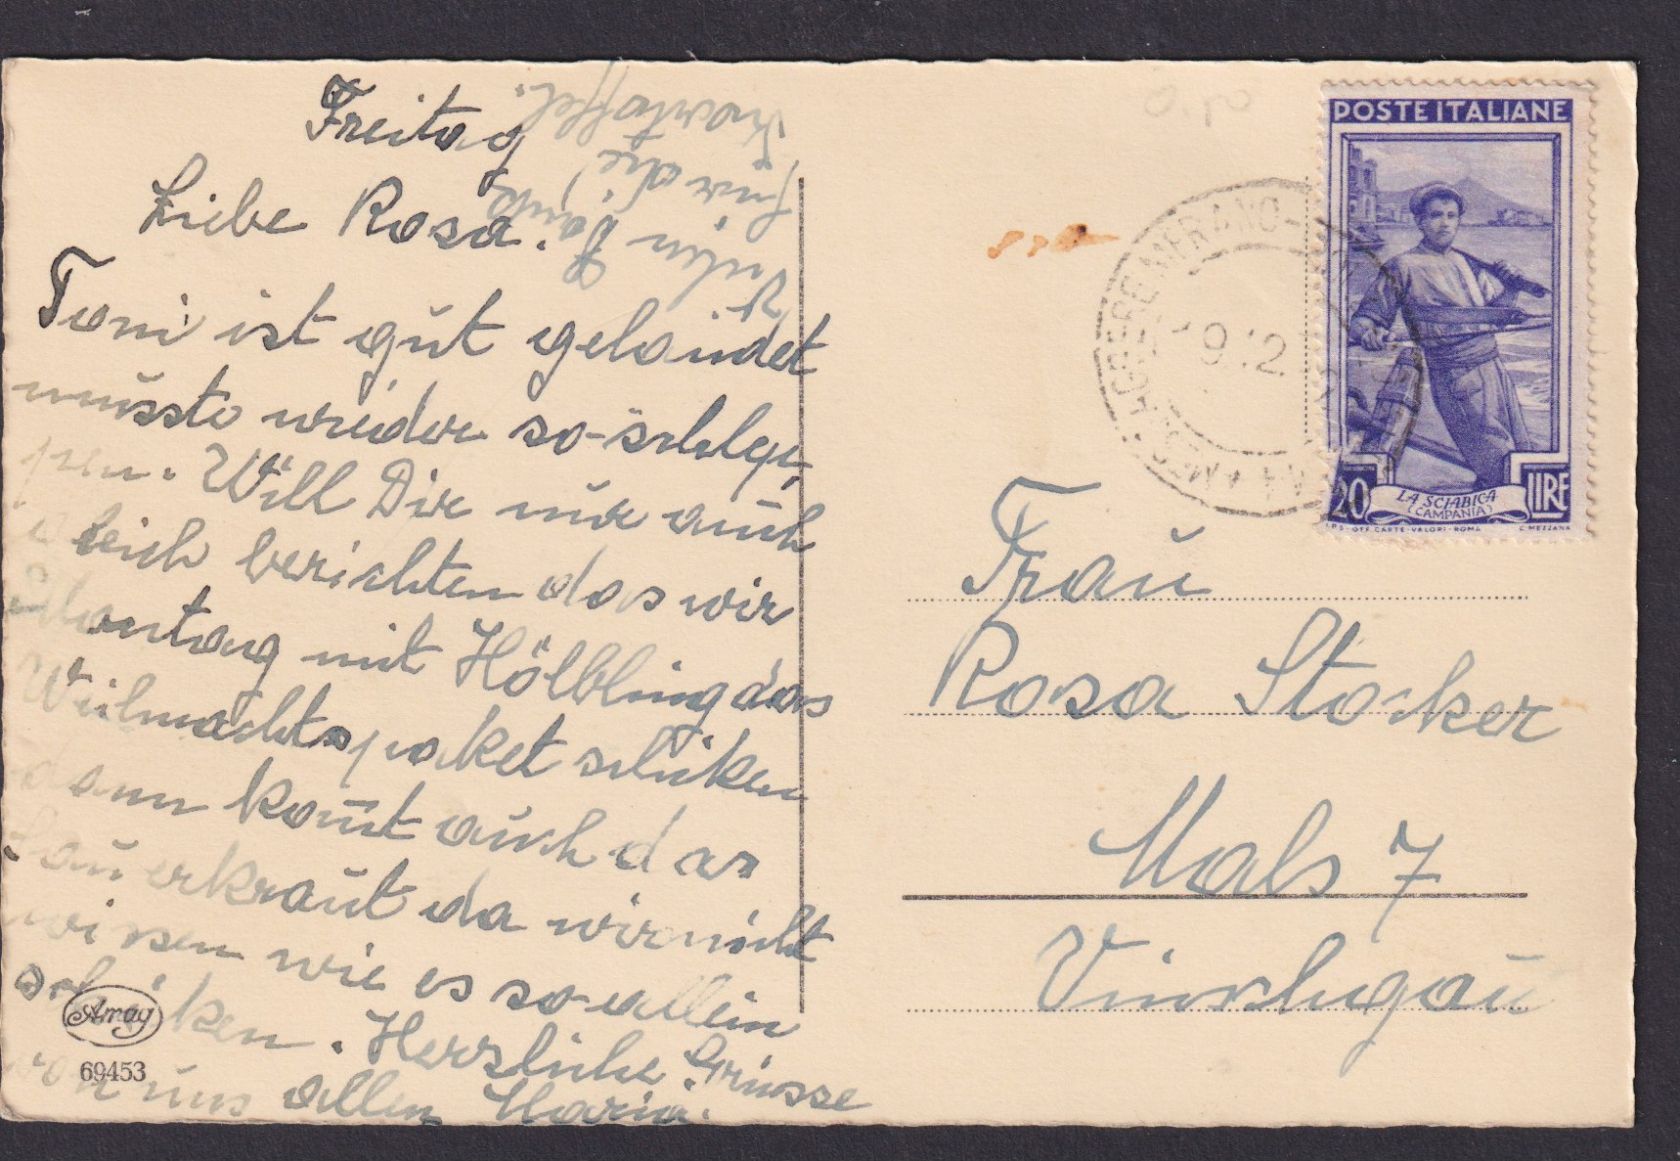 Freitag
Liebe Rosa.
Toni ist gut gelandet
müssto wieder so schlep,
pen. Will Dir nur auch
gleich berichten das wir
Montag mit Hölbling das
Weihnachtspaket schiken
dann komt auch das
Sauerkraut da wir nicht
wissen wie es so allein
schiken. Herzliche Grüsse
von uns allen Maria.
Vielen Dank
für die
Kartoffel.
Amag
69453
POSTE ITALIANE
20 LIRE
LA SCIABICA
(CAMPANIA)
I.P.S.-OFF. CARTE-VALORI-ROMA C. MEZZANA
MERANO
9.12
Frau
Rosa Stocker
Mals 7
Vinschgau